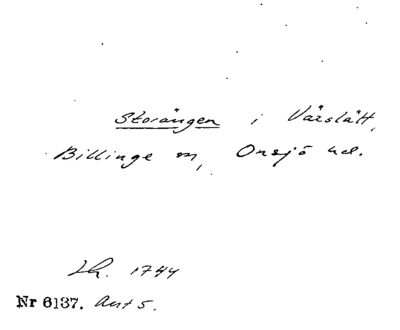 Storängen i Värslätt,
Billinge sn, Onsjö hd.
Lh. 1744
Nr 6137. Avt 5.